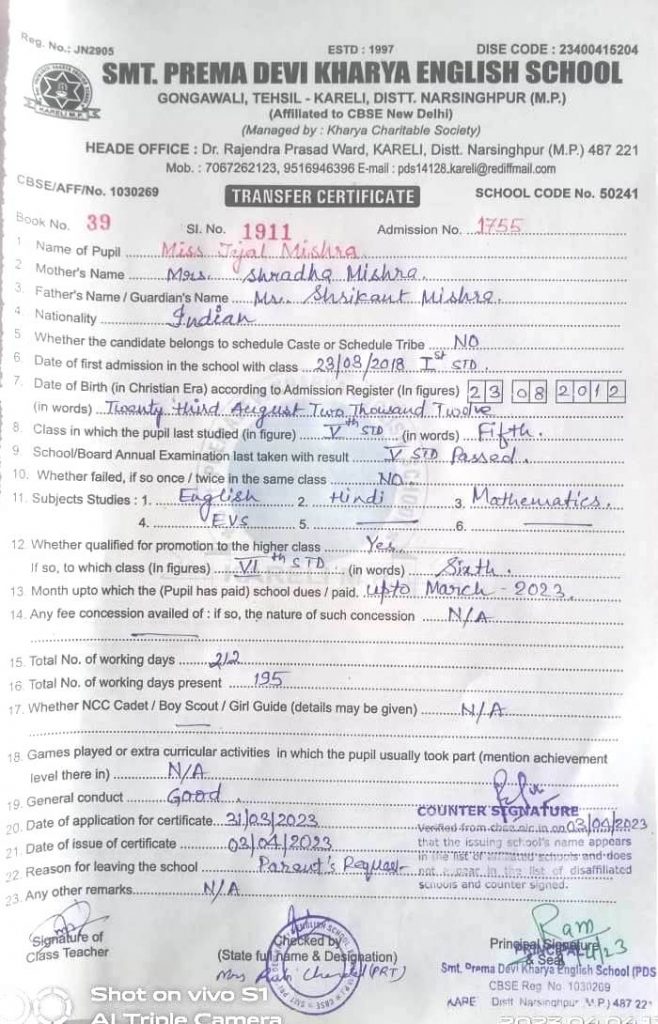 Reg. No.: JN2905 ESTD : 1997 DISE CODE : 23400415204
SMT. PREMA DEVI KHARYA ENGLISH SCHOOL
GONGAWALI, TEHSIL - KARELI, DISTT. NARSINGHPUR (M.P.)
(Affiliated to CBSE New Delhi)
(Managed by : Kharya Charitable Society)
HEADE OFFICE : Dr. Rajendra Prasad Ward, KARELI, Distt. Narsinghpur (M.P.) 487 221
Mob. : 7067262123, 9516946396 E-mail : pds14128.kareli@rediffmail.com
CBSE/AFF/No. 1030269 TRANSFER CERTIFICATE SCHOOL CODE No. 50241
Book No. 39 Sl. No. 1911 Admission No. 1755
1 Name of Pupil Miss Mishra
2 Mother's Name Mrs. Shradha Mishra.
3. Father's Name / Guardian's Name Mr. Shrikant Mishra.
4. Nationality Indian
5 Whether the candidate belongs to schedule Caste or Schedule Tribe NO
6. Date of first admission in the school with class 23/08/2018 Ist STD.
7. Date of Birth (in Christian Era) according to Admission Register (In figures) 23 08 2012
(in words) Twenty third August Two Thousand Twelve
8. Class in which the pupil last studied (in figure) Vth STD (in words) Fifth.
9. School/Board Annual Examination last taken with result V STD Passed.
10. Whether failed, if so once / twice in the same class NO.
11. Subjects Studies : 1. English 2. Hindi 3. Mathematics.
4. EVS 5. 6.
12. Whether qualified for promotion to the higher class Yes.
If so, to which class (In figures) VIth STD (in words) Sixth.
13. Month upto which the (Pupil has paid) school dues / paid. upto March - 2023.
14. Any fee concession availed of : if so, the nature of such concession N/A
15. Total No. of working days 212
16. Total No. of working days present 195
17. Whether NCC Cadet / Boy Scout / Girl Guide (details may be given) N/A
18. Games played or extra curricular activities in which the pupil usually took part (mention achievement
level there in) N/A
19. General conduct Good.
COUNTER SIGNATURE
20. Date of application for certificate 31/03/2023
Verified from cbse.nic.in on 03/04/2023
21. Date of issue of certificate 03/04/2023
that the issuing school's name appears
in the list of affiliated schools and does
22. Reason for leaving the school Parent's Request
not appear in the list of disaffiliated
23. Any other remarks N/A
schools and counter signed.
Signature of
Class Teacher
Checked by
(State full name & Designation)
Mrs (PRT)
Ram
Principal Signature
& Seal
PRINCIPAL
Smt. Prema Devi Kharya English School (PDS
CBSE Reg No. 1030269
Distt Narsinghpur (M.P.) 487 22
Shot on vivo S1
AI Triple Camera